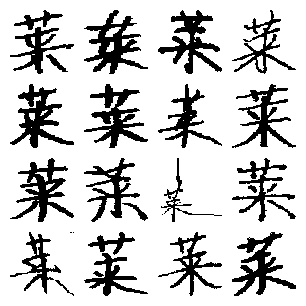 莱莱莱莱
莱莱莱莱
莱莱莱莱
莱莱莱莱